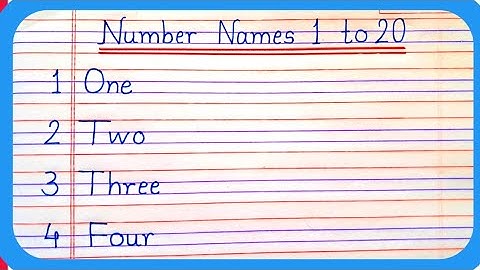 Number Names 1 to 20
1 One
2 Two
3 Three
4 Four